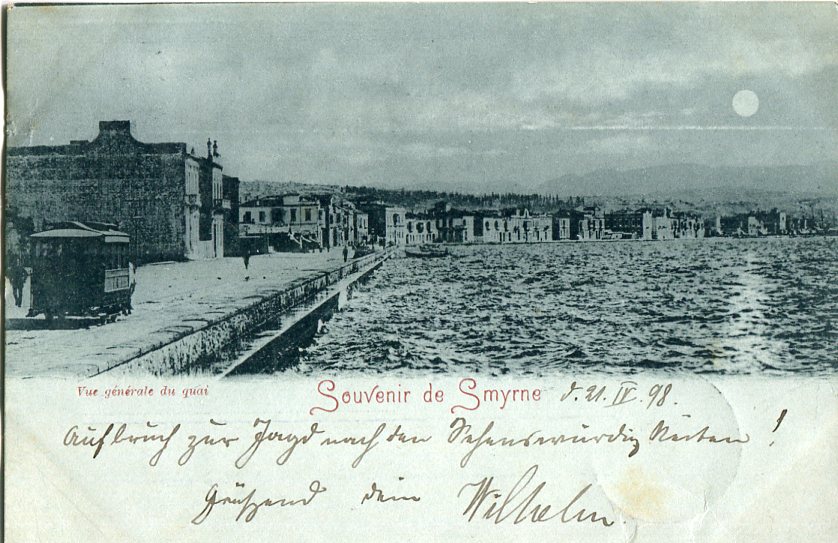 Vue générale du quai
Souvenir de Smyrne d. 21. IV. 98.
Aufbruch zur Jagd nach den Sehenswürdigkeiten!
Grüßend dein Wilhelm.